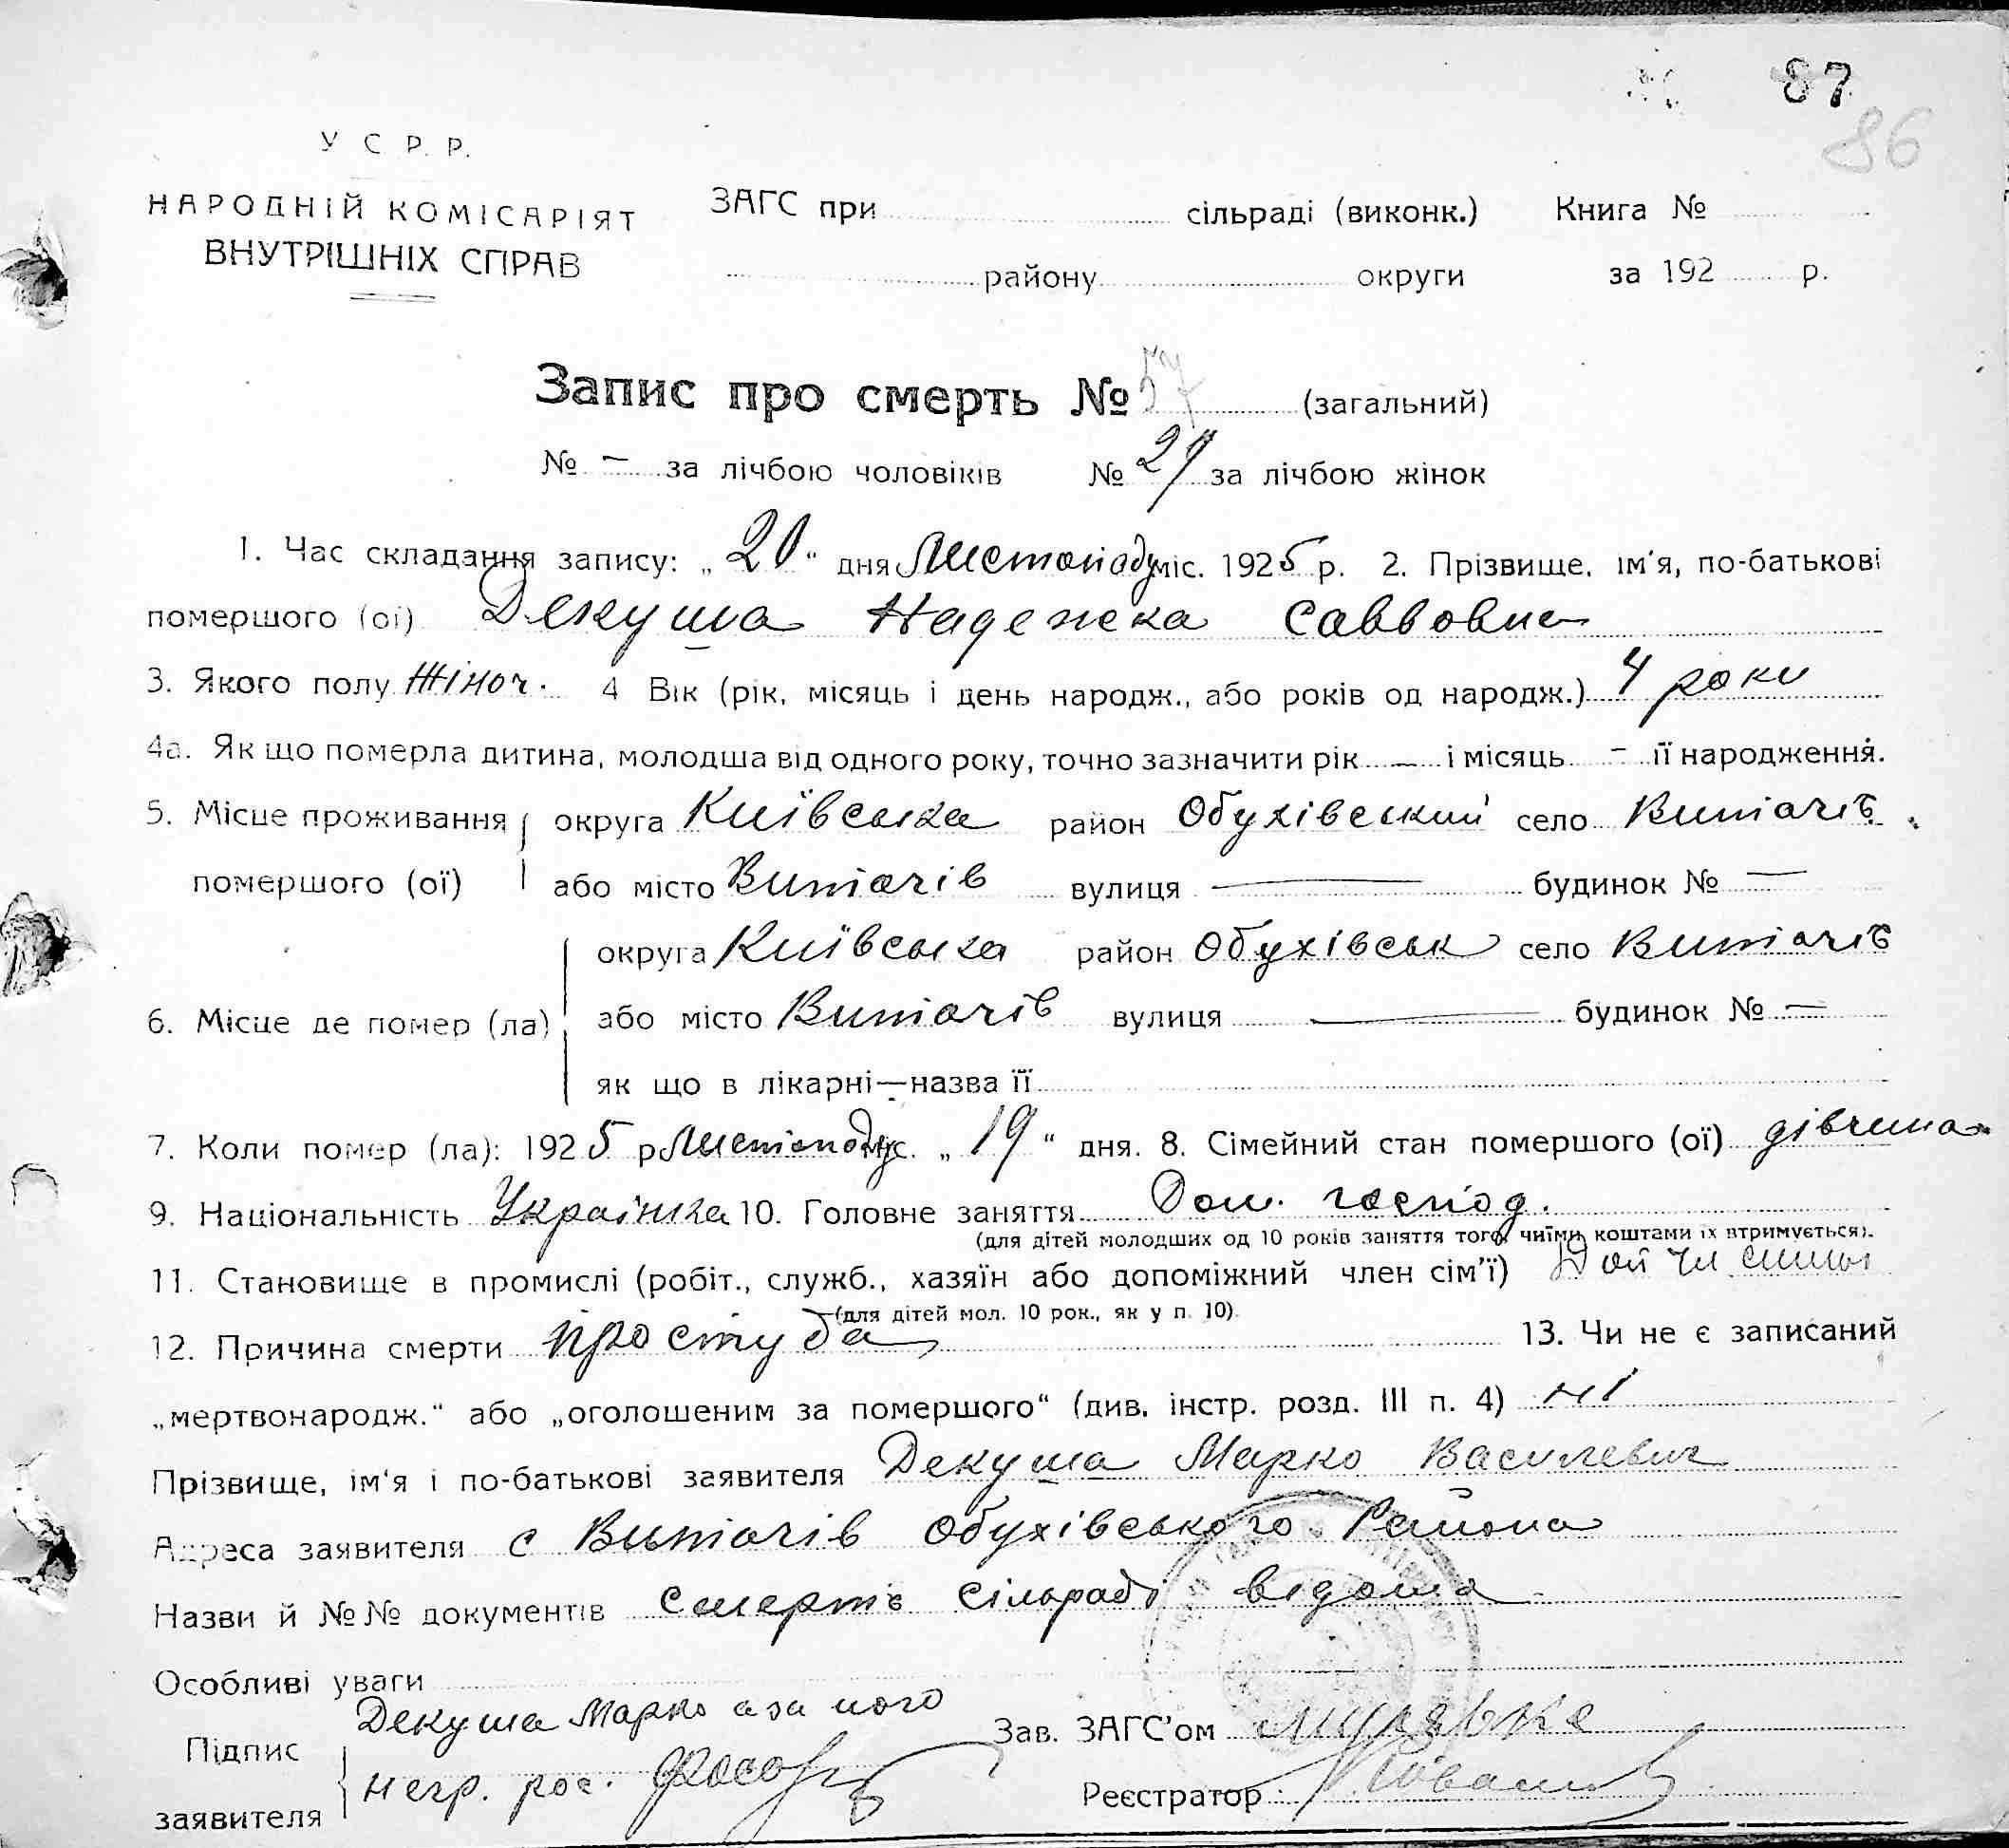 87
86
У С Р. Р.
НАРОДНІЙ КОМІСАРІЯТ
ВНУТРІШНІХ СПРАВ
ЗАГС при сільраді (виконк.) Книга №
району округи за 192 р.
Запис про смерть № 57 (загальний)
№ — за лічбою чоловіків № 29 за лічбою жінок
1. Час складання запису: „20“ дня Листопаду міс. 1925 р. 2. Прізвище, ім'я, по-батькові
помершого (ої) Декуша Надежка Савовна
3. Якого полу Жіноч. 4 Вік (рік, місяць і день народж., або років од народж.) 4 роки
4а. Як що померла дитина, молодша від одного року, точно зазначити рік — і місяць - її народження.
5. Місце проживання округа Київська район Обухівський село Витачів
помершого (ої) або місто Витачів вулиця — будинок № —
округа Київська район Обухівськ село Витачів
6. Місце де помер (ла) або місто Витачів вулиця — будинок № —
як що в лікарні—назва її
7. Коли помер (ла): 1925 р Листопаду міс. „19“ дня. 8. Сімейний стан помершого (ої) дівчина
9. Національність Українка 10. Головне заняття Дом. господ.
(для дітей молодших од 10 років заняття того, чиїми коштами їх втримується).
11. Становище в промислі (робіт., служб., хазяїн або допоміжний член сім'ї) Доп чл симьи
(для дітей мол. 10 рок., як у п. 10).
12. Причина смерти простуда 13. Чи не є записаний
„мертвонародж.“ або „оголошеним за помершого“ (див. інстр. розд. III п. 4) ні
Прізвище, ім'я і по-батькові заявителя Декуша Марко Василевич
Адреса заявителя с Витачів Обухівського Района
Назви й №№ документів Смерть сільраді відома
Особливі уваги
Декуша Марко а за него
Підпис заявителя негр. рос.
Зав. ЗАГС'ом
Реєстратор